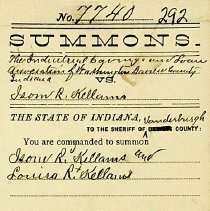 No. 7740 292
SUMMONS.
The Industrial Saving and Loan
Association of Washington Daviess County
Indiana VS.
Isom R. Kellams
THE STATE OF INDIANA, Vanderburgh
TO THE SHERIFF OF COUNTY:
You are commanded to summon
Isom R. Kellams and
Louisa R. Kellams